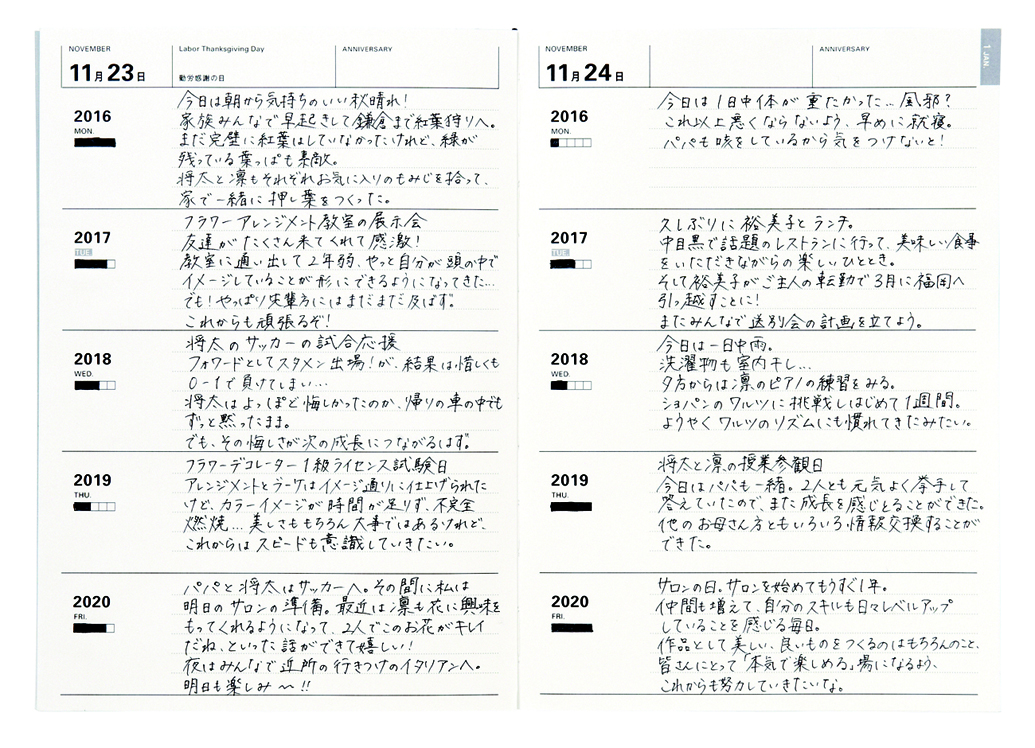 NOVEMBER
11月23日
Labor Thanksgiving Day
勤労感謝の日
ANNIVERSARY
2016
MON.
今日は朝から気持ちのいい秋晴れ！
家族みんなで早起きして鎌倉まで紅葉狩りへ。
まだ完璧に紅葉はしていなかったけれど、緑が
残っている葉っぱも素敵。
将太と凛もそれぞれお気に入りのもみじを拾って、
家で一緒に押し葉をつくった。
2017
フラワーアレンジメント教室の展示会
友達がたくさん来てくれて感激！
教室に通い出して2年弱、やっと自分が頭の中で
イメージしていることが形にできるようになってきた…
でも！やっぱり先輩方にはまだまだ及ばず。
これからも頑張るぞ！
2018
WED.
将太のサッカーの試合応援
フォワードとしてスタメン出場！が、結果は惜しくも
0-1で負けてしまい…
将太はよっぽど悔しかったのか、帰りの車の中でも
ずっと黙ったまま。
でも、その悔しさが次の成長につながるはず。
2019
THU.
フラワーデコレーター1級ライセンス試験日
アレンジメントとブーケはイメージ通りに仕上げられた
けど、カラーイメージが時間が足りず、不完全
燃焼…美しさももちろん大事ではあるけれど、
これからはスピードも意識していきたい。
2020
FRI.
パパと将太はサッカーへ。その間に私は
明日のサロンの準備。最近は凛も花に興味を
もってくれるようになって、2人でこのお花がキレイ
だね、といった話ができて嬉しい！
夜はみんなで近所の行きつけのイタリアンへ。
明日も楽しみ〜!!
NOVEMBER
11月24日
ANNIVERSARY
1 JAN.
2016
MON.
今日は1日中体が重たかった…風邪？
これ以上悪くならないよう、早めに就寝。
パパも咳をしているから気をつけないと！
2017
久しぶりに裕美子とランチ。
中目黒で話題のレストランに行って、美味しい食事
をいただきながらの楽しいひととき。
そして裕美子がご主人の転勤で3月に福岡へ
引っ越すことに！
またみんなで送別会の計画を立てよう。
2018
WED.
今日は一日中雨。
洗濯物も室内干し…
夕方からは凛のピアノの練習をみる。
ショパンのワルツに挑戦しはじめて1週間。
ようやくワルツのリズムにも慣れてきたみたい。
2019
THU.
将太と凛の授業参観日
今日はパパも一緒。2人とも元気よく挙手して
答えていたので、また成長を感じとることができた。
他のお母さん方ともいろいろ情報交換することが
できた。
2020
FRI.
サロンの日。サロンを始めてもうすぐ1年。
仲間も増えて、自分のスキルも日々レベルアップ
していることを感じる毎日。
作品として美しい、良いものをつくるのはもちろんのこと、
皆さんにとって「本気で楽しめる」場になるよう、
これからも努力していきたいな。